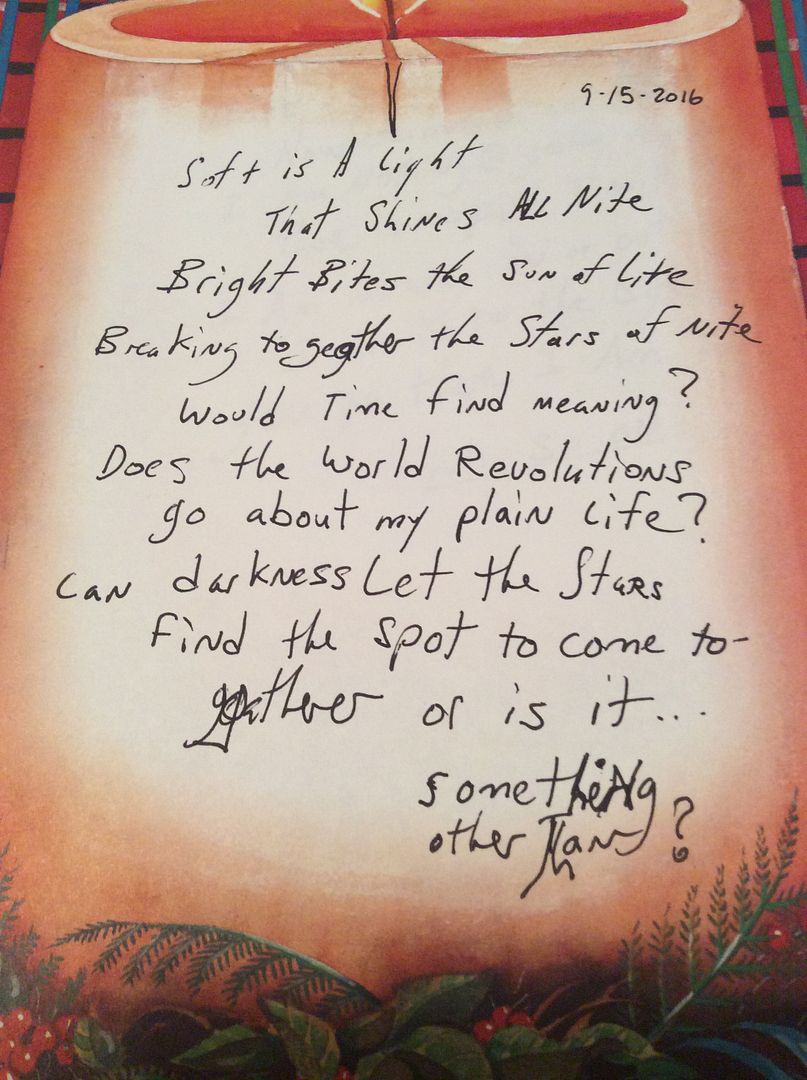 9-15-2016
Soft is A Light
That Shines All Nite
Bright Bites the Sun of Life
Breaking together the Stars of Nite
Would Time find meaning?
Does the World Revolutions
go about my plain Life?
Can darkness Let the Stars
find the spot to come to-
gather or is it...
something
other Than?